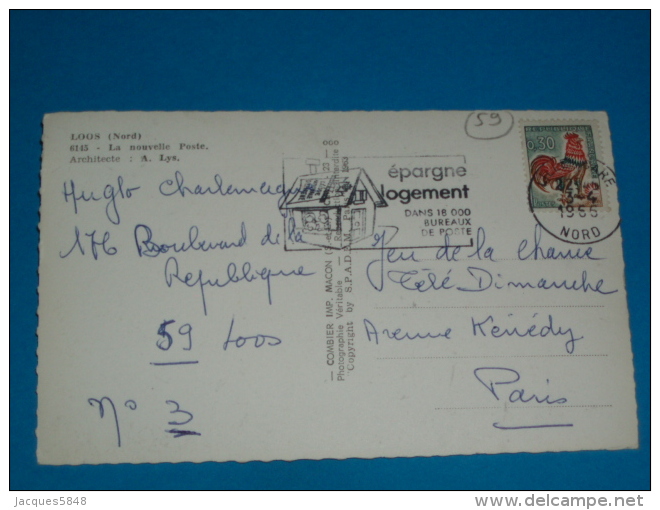 LOOS (Nord)
6145 - La nouvelle Poste.
Architecte : A. Lys.
59
0,30
épargne
logement
DANS 18 000
BUREAUX
DE POSTE
1966
NORD
Huglo Charlemagne
176 Boulevard de la
République
59 Loos
N° 3
Jeu de la chance
Télé Dimanche
Avenue Kénédy
Paris
— COMBIER IMP. MACON
Photographie Véritable —
Copyright by S.P.A.D.E.M.
Jacques5848
delcampe.net